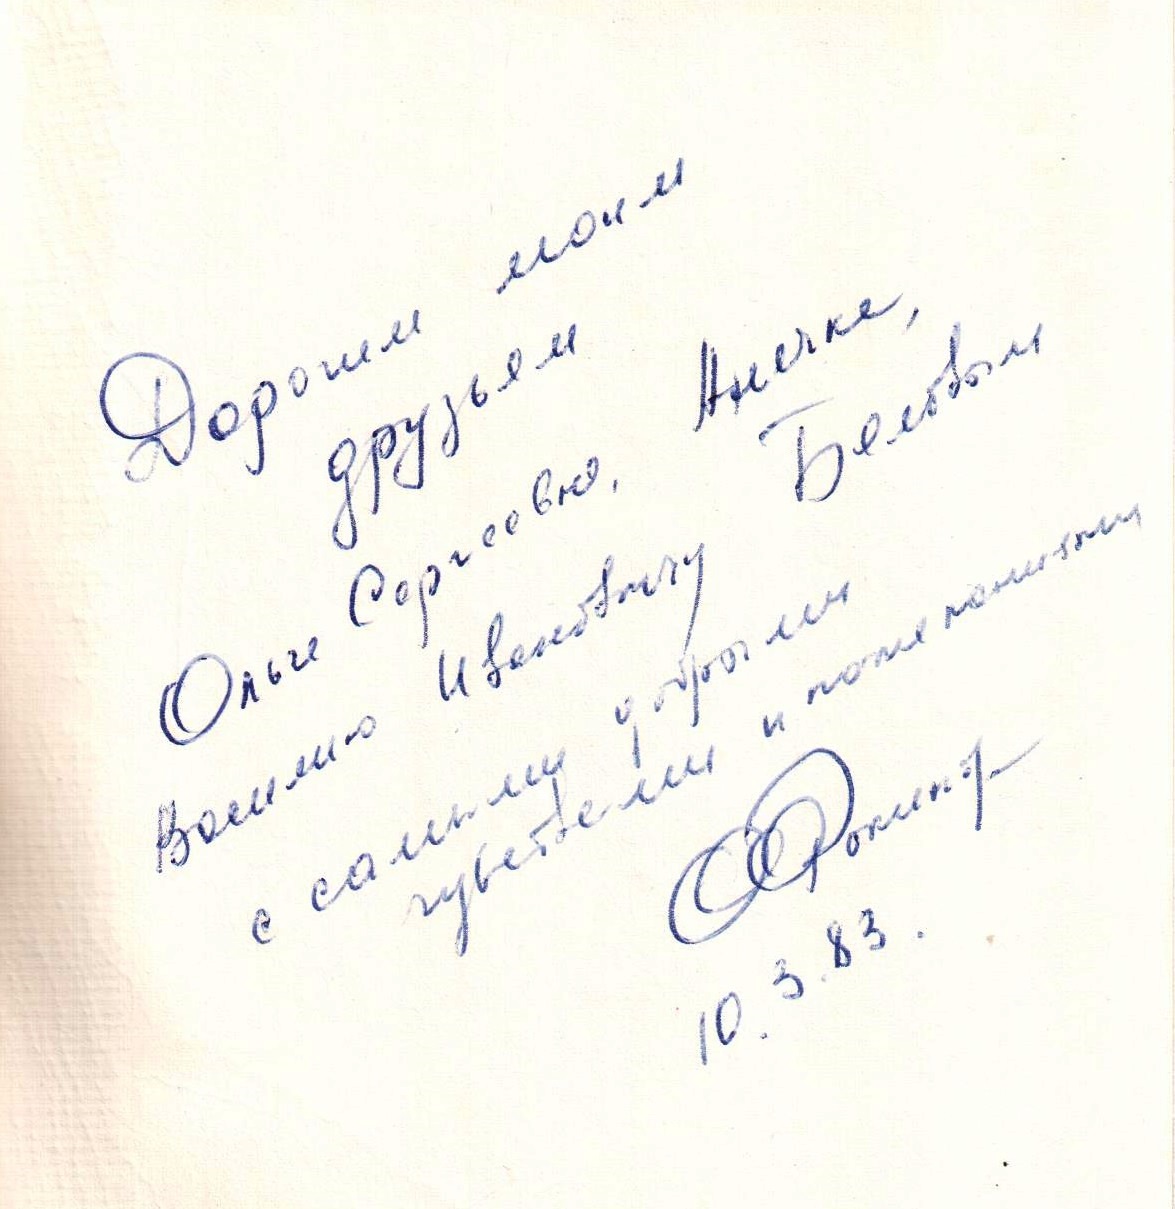 Дорогим моим
друзьям
Ольге Сергеевне, Анечке,
Василию Ивановичу Беловым
с самыми добрыми
чувствами и пожеланиями
ОФокина
10.3.83.